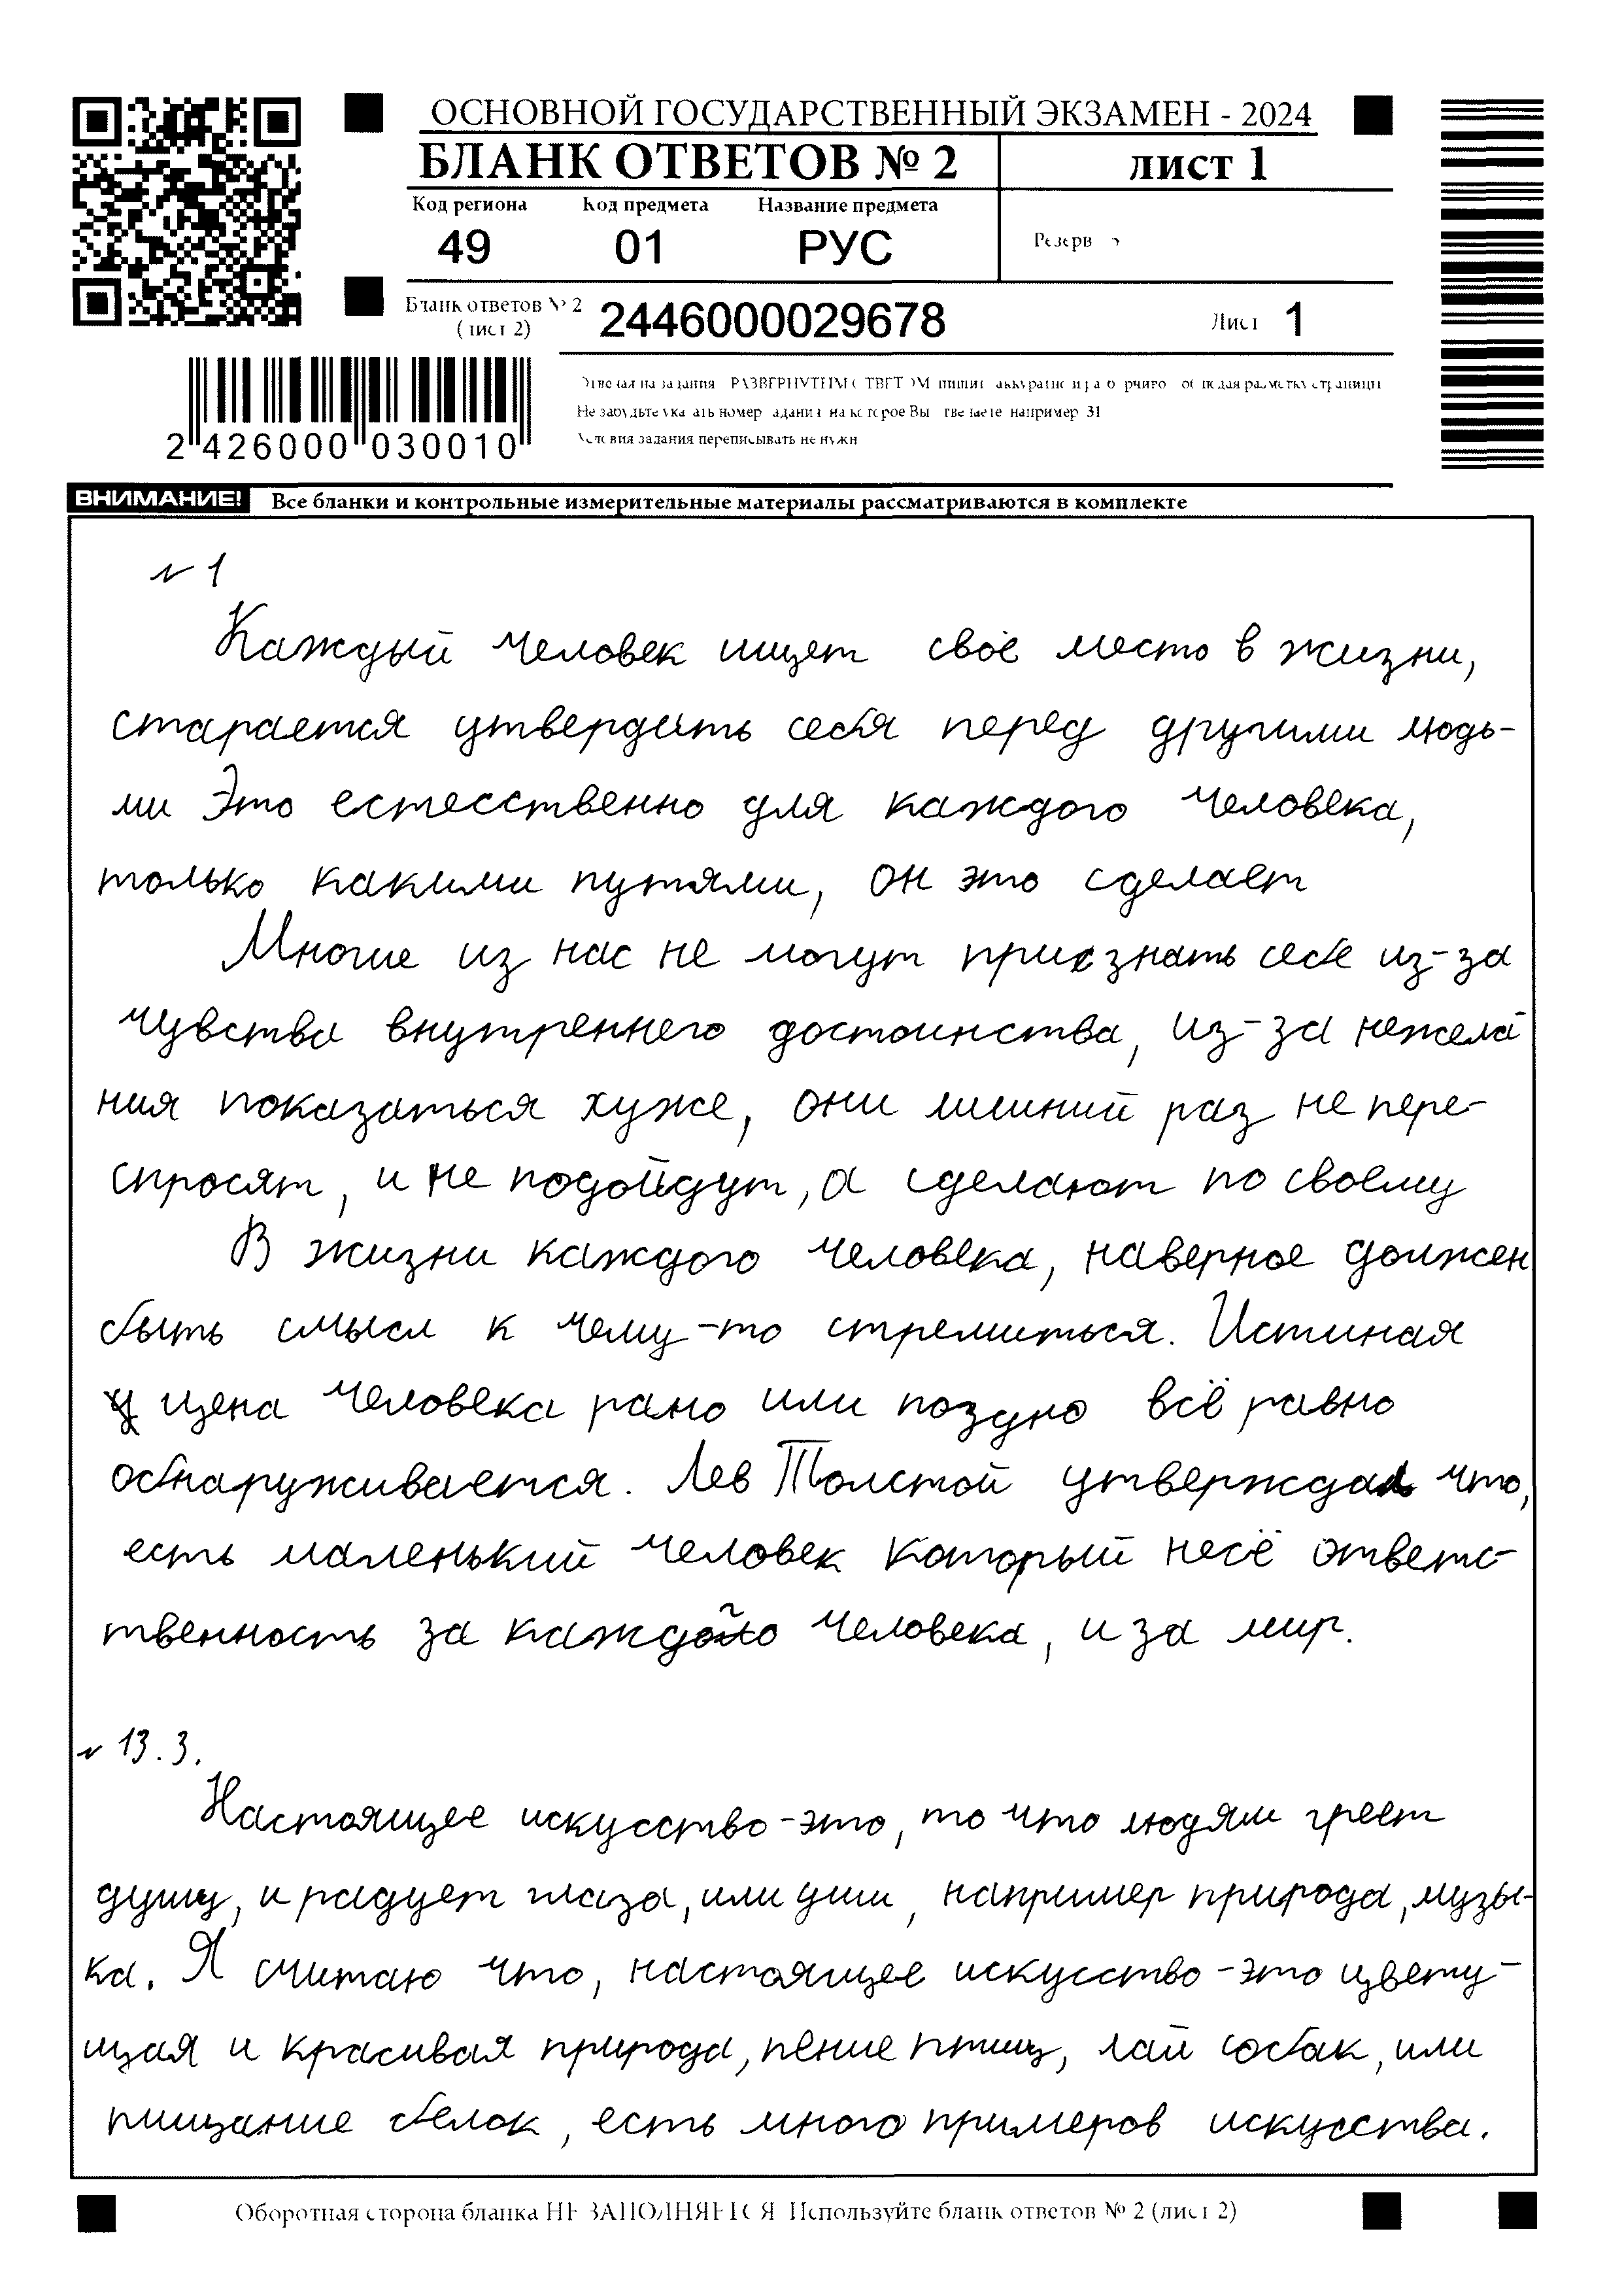 ОСНОВНОЙ ГОСУДАРСТВЕННЫЙ ЭКЗАМЕН - 2024
БЛАНК ОТВЕТОВ № 2
ЛИСТ 1
Код региона Код предмета Название предмета
49 01 РУС
Резерв
Бланк ответов № 2
(лист 2)
2446000029678
Лист 1
Не забудьте указать номер задания на которое Вы отвечаете например 31
Условия задания переписывать не нужно
2 426000 030010
ВНИМАНИЕ! Все бланки и контрольные измерительные материалы рассматриваются в комплекте
№ 1
Каждый человек ищет своё место в жизни,
старается утвердить себя перед другими людь-
ми Это естесственно для каждого человека,
только какими путями, он это сделает
Многие из нас не могут признать себе из-за
чувства внутреннего достоинства, из-за нежела-
ния показаться хуже, они лишний раз не пере-
спросят, и не подойдут, а сделают по своему
В жизни каждого человека, наверное должен
быть смысл к чему-то стремиться. Истиная
цена человека рано или поздно всё равно
обнаруживается. Лев Толстой утверждал что,
есть маленький человек который несё ответс-
твенность за каждого человека, и за мир.
№ 13.3.
Настоящее искусство-это, то что людям греет
душу, и радует глаза, или уши, например природа, музы-
ка. Я считаю что, настоящее искусство-это цвету-
щая и красивая природа, пение птиц, лай собак, или
пищание белок, есть много примеров искусства.
Оборотная сторона бланка НЕ ЗАПОЛНЯЕТСЯ Используйте бланк ответов № 2 (лист 2)